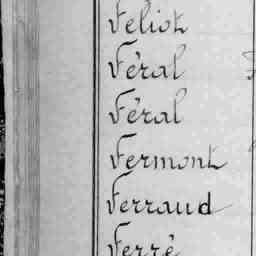 Féliot
Féral
Féral
Fermont
Ferraud
Ferré